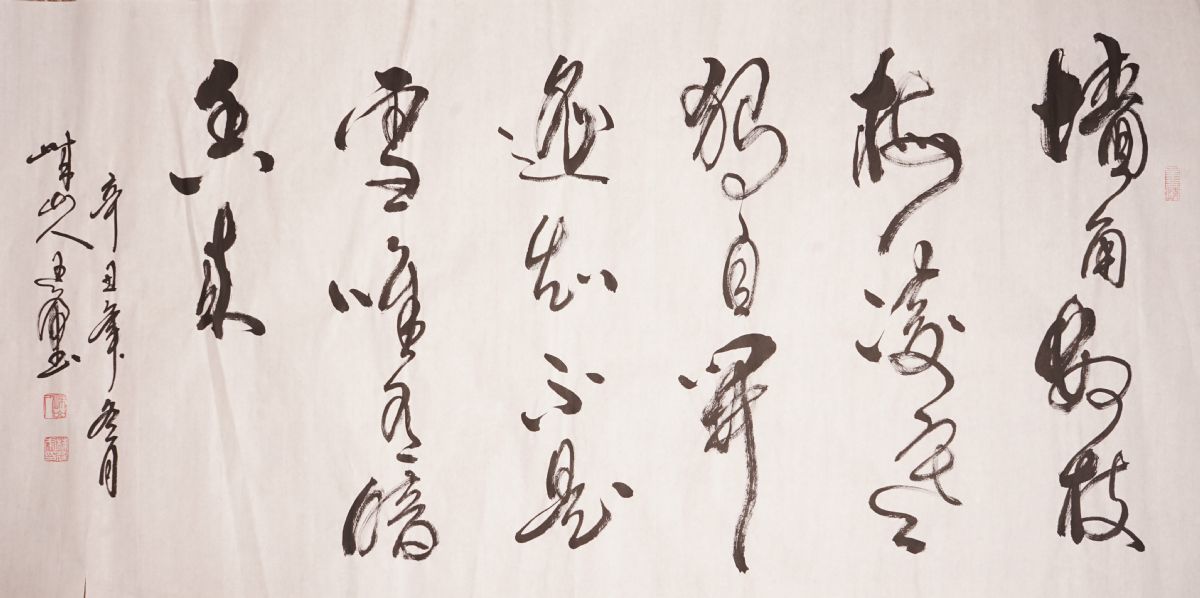 墙角数枝
梅凌寒
独自開
遥知不是
雪唯有暗
香来
辛丑年冬月
山人